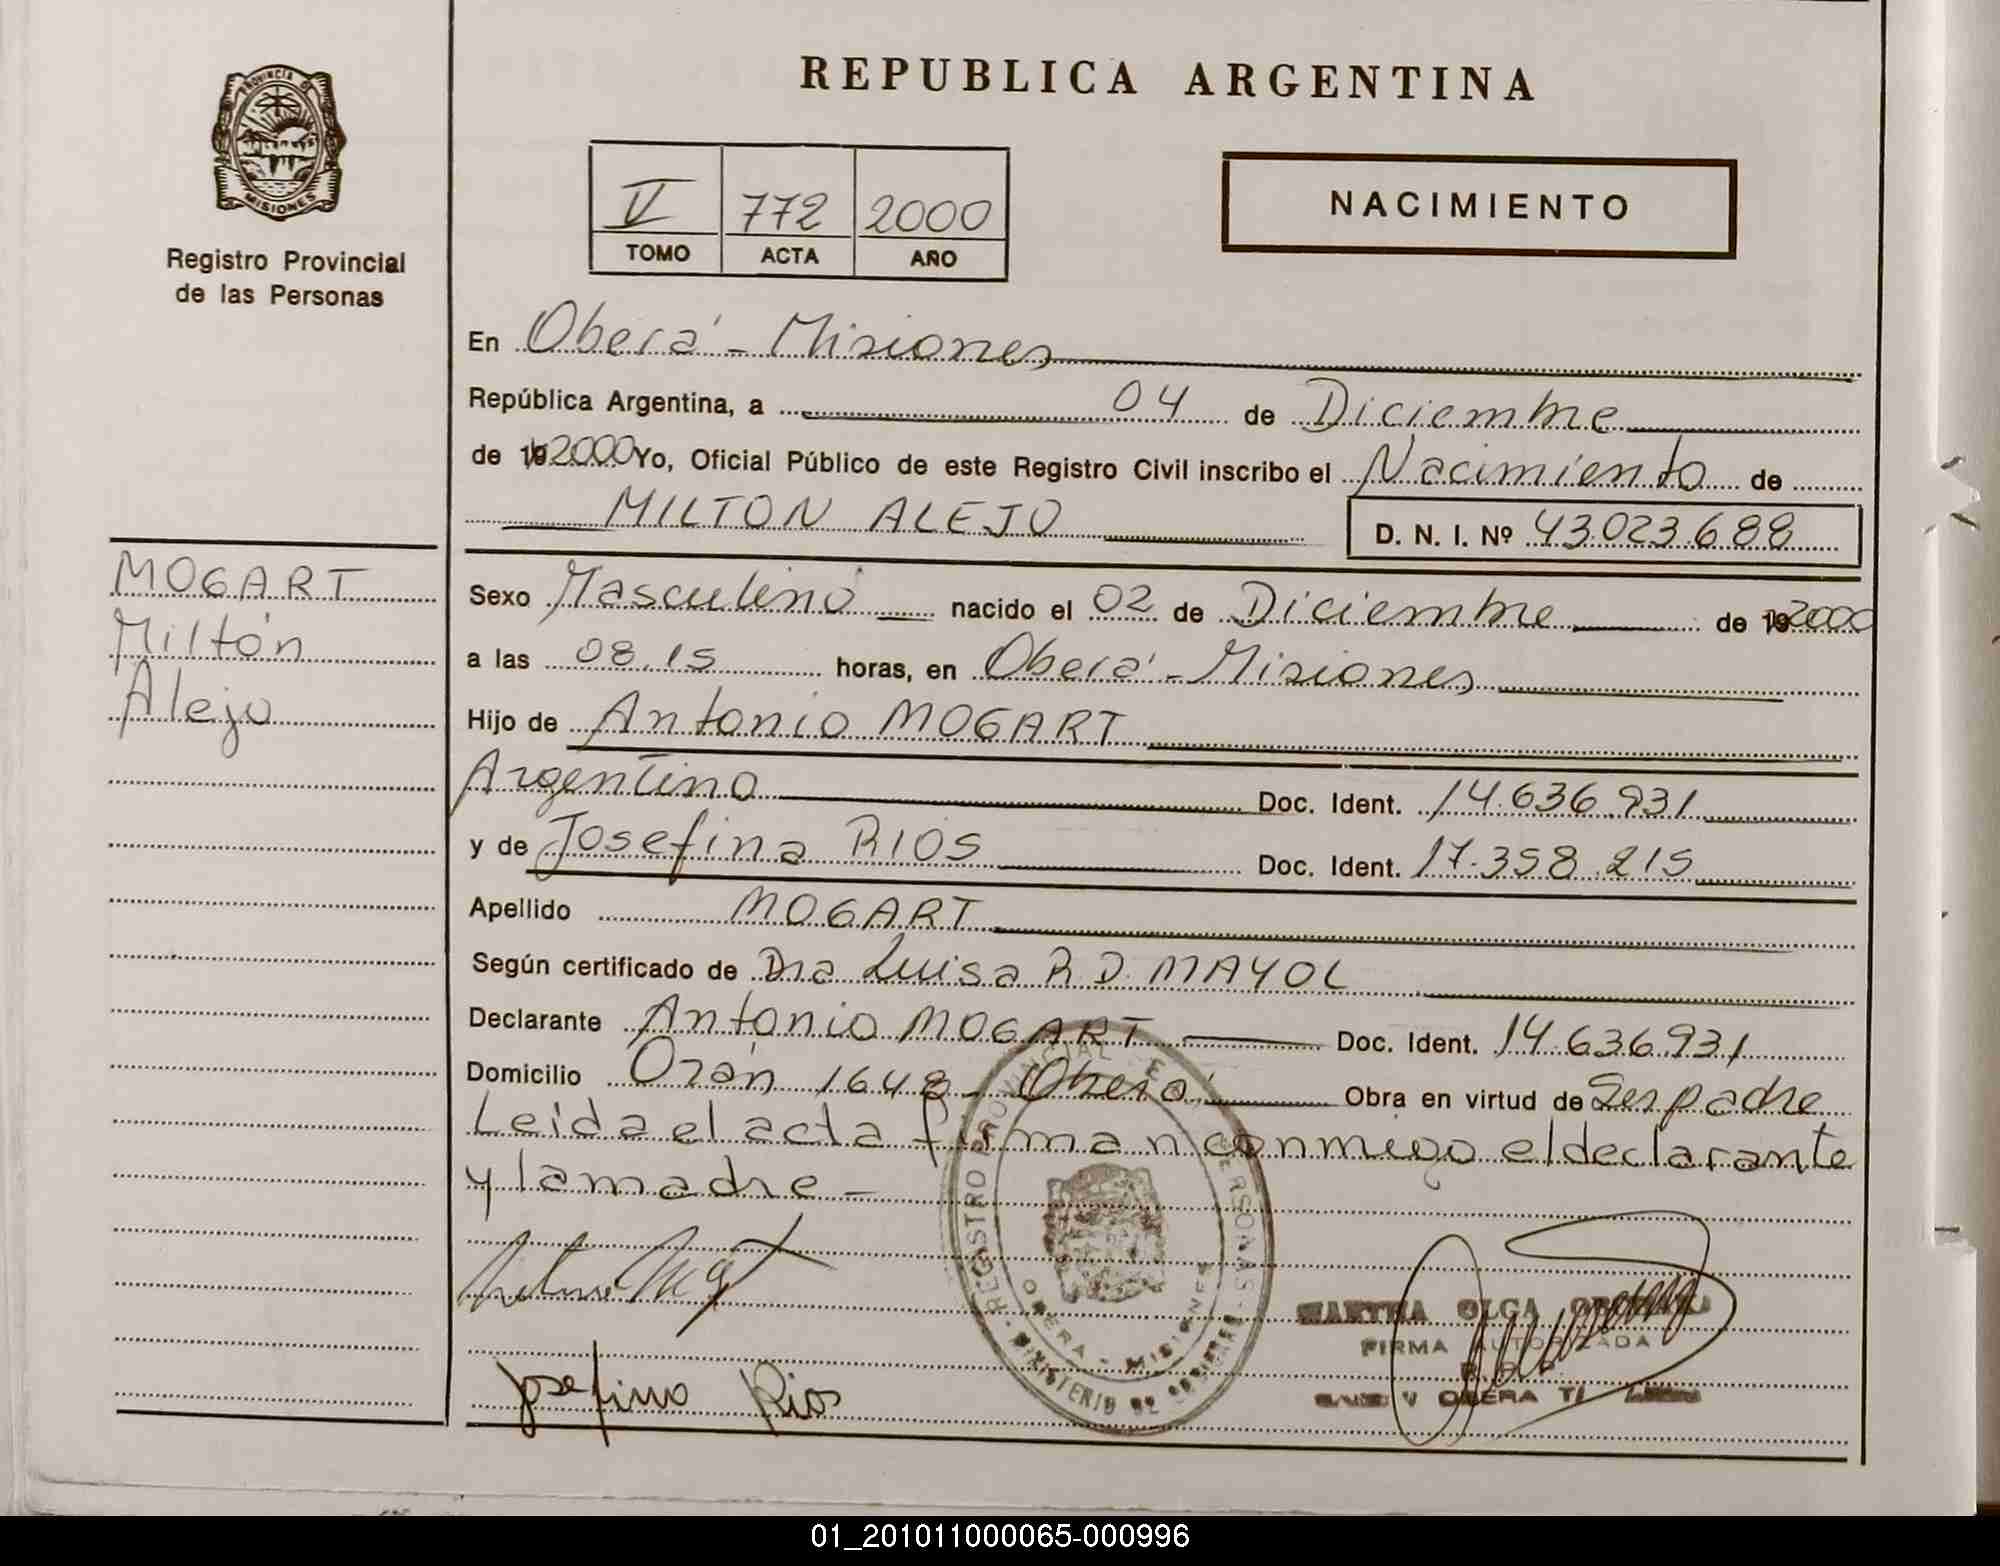 PROVINCIA D
MISIONES
Registro Provincial
de las Personas
REPUBLICA ARGENTINA
V 772 2000
TOMO ACTA AÑO
NACIMIENTO
En Oberá - Misiones
República Argentina, a 04 de Diciembre
de 19 2000 Yo, Oficial Público de este Registro Civil inscribo el Nacimiento de
MILTON ALEJO D. N. I. Nº 43.023.688
MOGART
Miltón
Alejo
Sexo Masculino nacido el 02 de Diciembre de 19 2000
a las 08.15 horas, en Oberá - Misiones
Hijo de Antonio MOGART
Argentino Doc. Ident. 14.636.931
y de Josefina RIOS Doc. Ident. 17.358.215
Apellido MOGART
Según certificado de Dra Luisa R.D. MAYOL
Declarante Antonio MOGART Doc. Ident. 14.636.931
Domicilio Orán 1648 - Oberá Obra en virtud de Ser padre
Leida el acta firman conmigo el declarante
y la madre -
REGISTRO PROVINCIAL DE LAS PERSONAS - MINISTERIO DE GOBIERNO
OBERA - MISIONES
MARTHA OLGA
FIRMA AUTORIZADA
OBERA
Josefina Rios
01_201011000065-000996